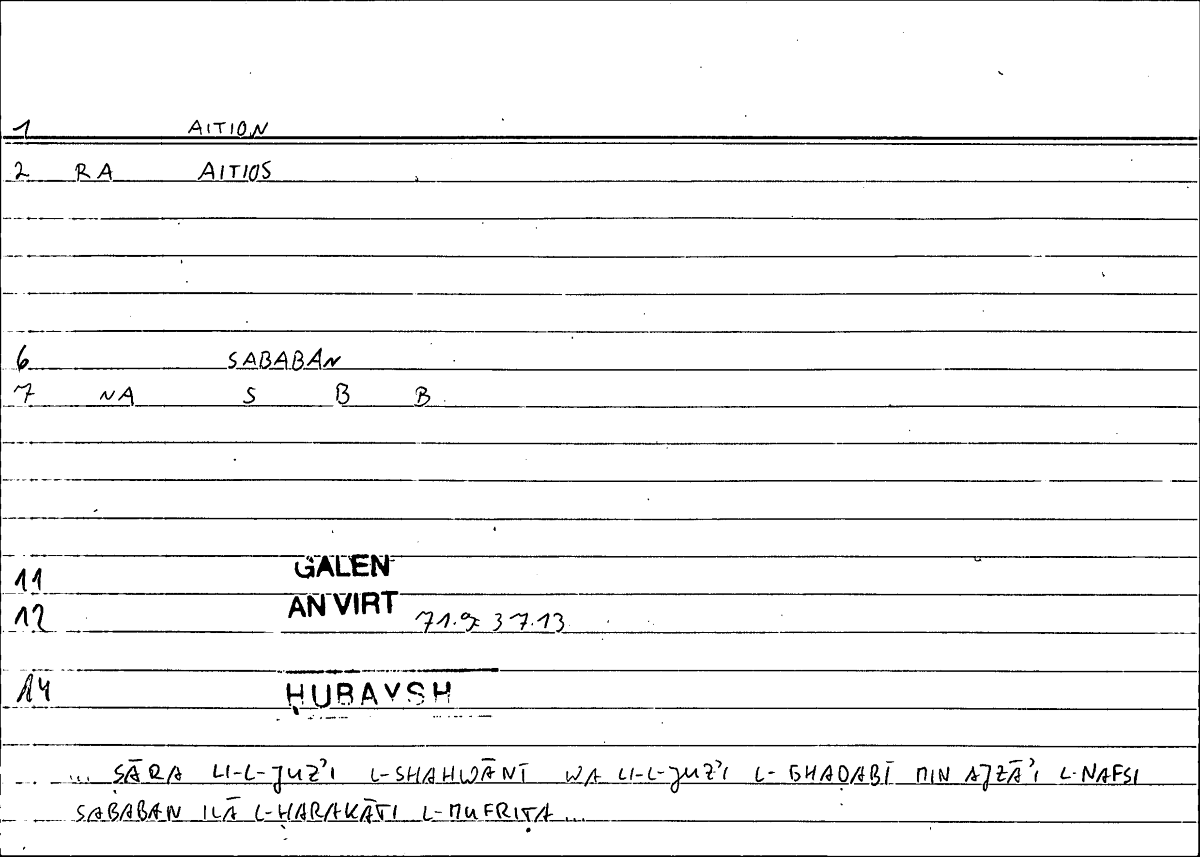 1 AITION
2 RA AITIOS
6 SABABAN
7 NA S B B
11 GALEN
12 AN VIRT 71.9= 37.13
14 ḤUBAYSH
... ṢĀRA LI-L-JUZʾI L-SHAHWĀNĪ WA LI-L-JUZʾI L-GHAḌABĪ MIN AJZĀʾI L-NAFSI
SABABAN ILĀ L-ḤARAKĀTI L-MUFRIṬA ...